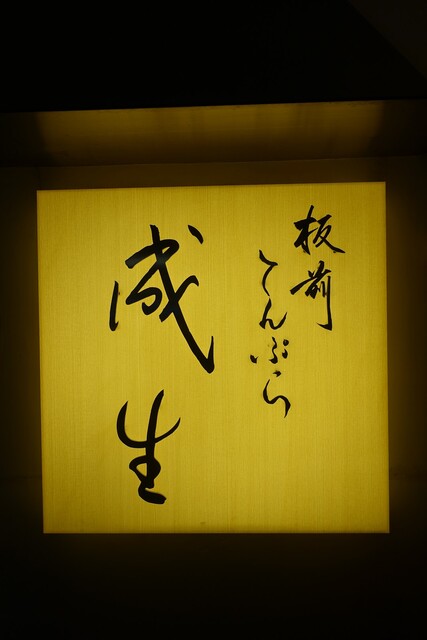 板前
てんぷら
成生